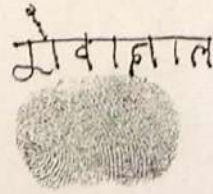 मेवालाल